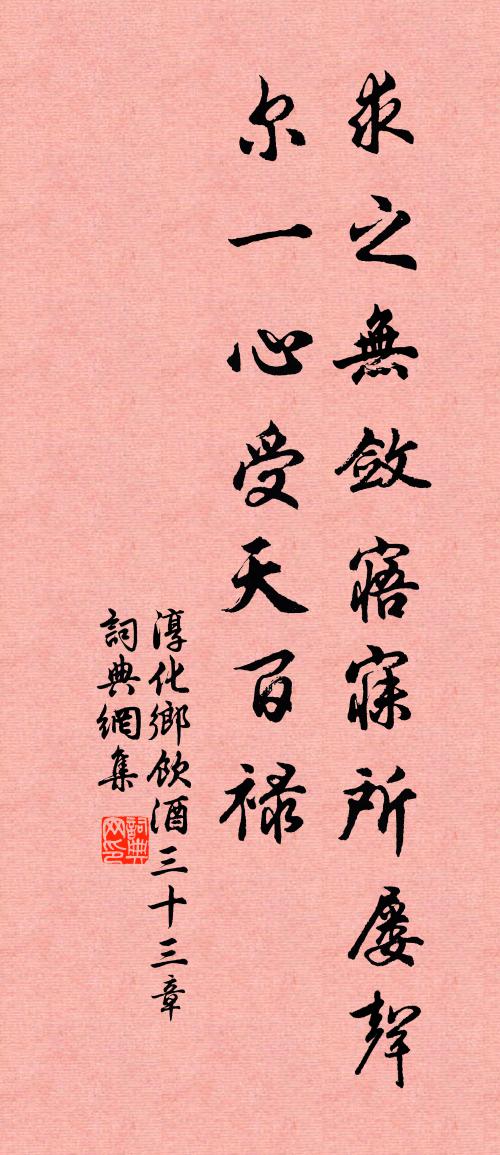 求之無斂寤寐所屡聲
尔一心受天百禄
淳化鄉飲酒三十三章
詞典網集
詞典网印